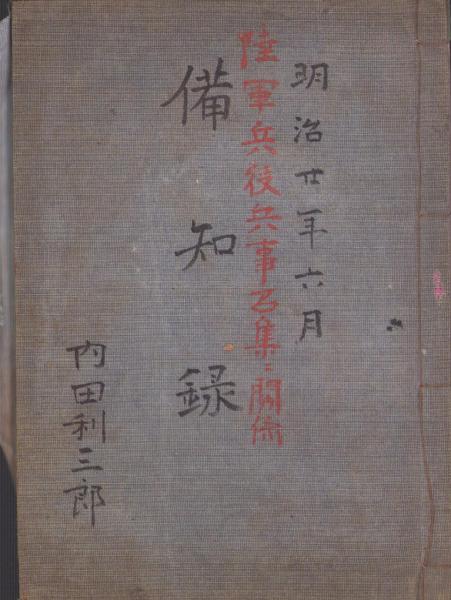 明治廿年六月
陸軍兵役兵事召集ニ関係
備知録
内田利三郎